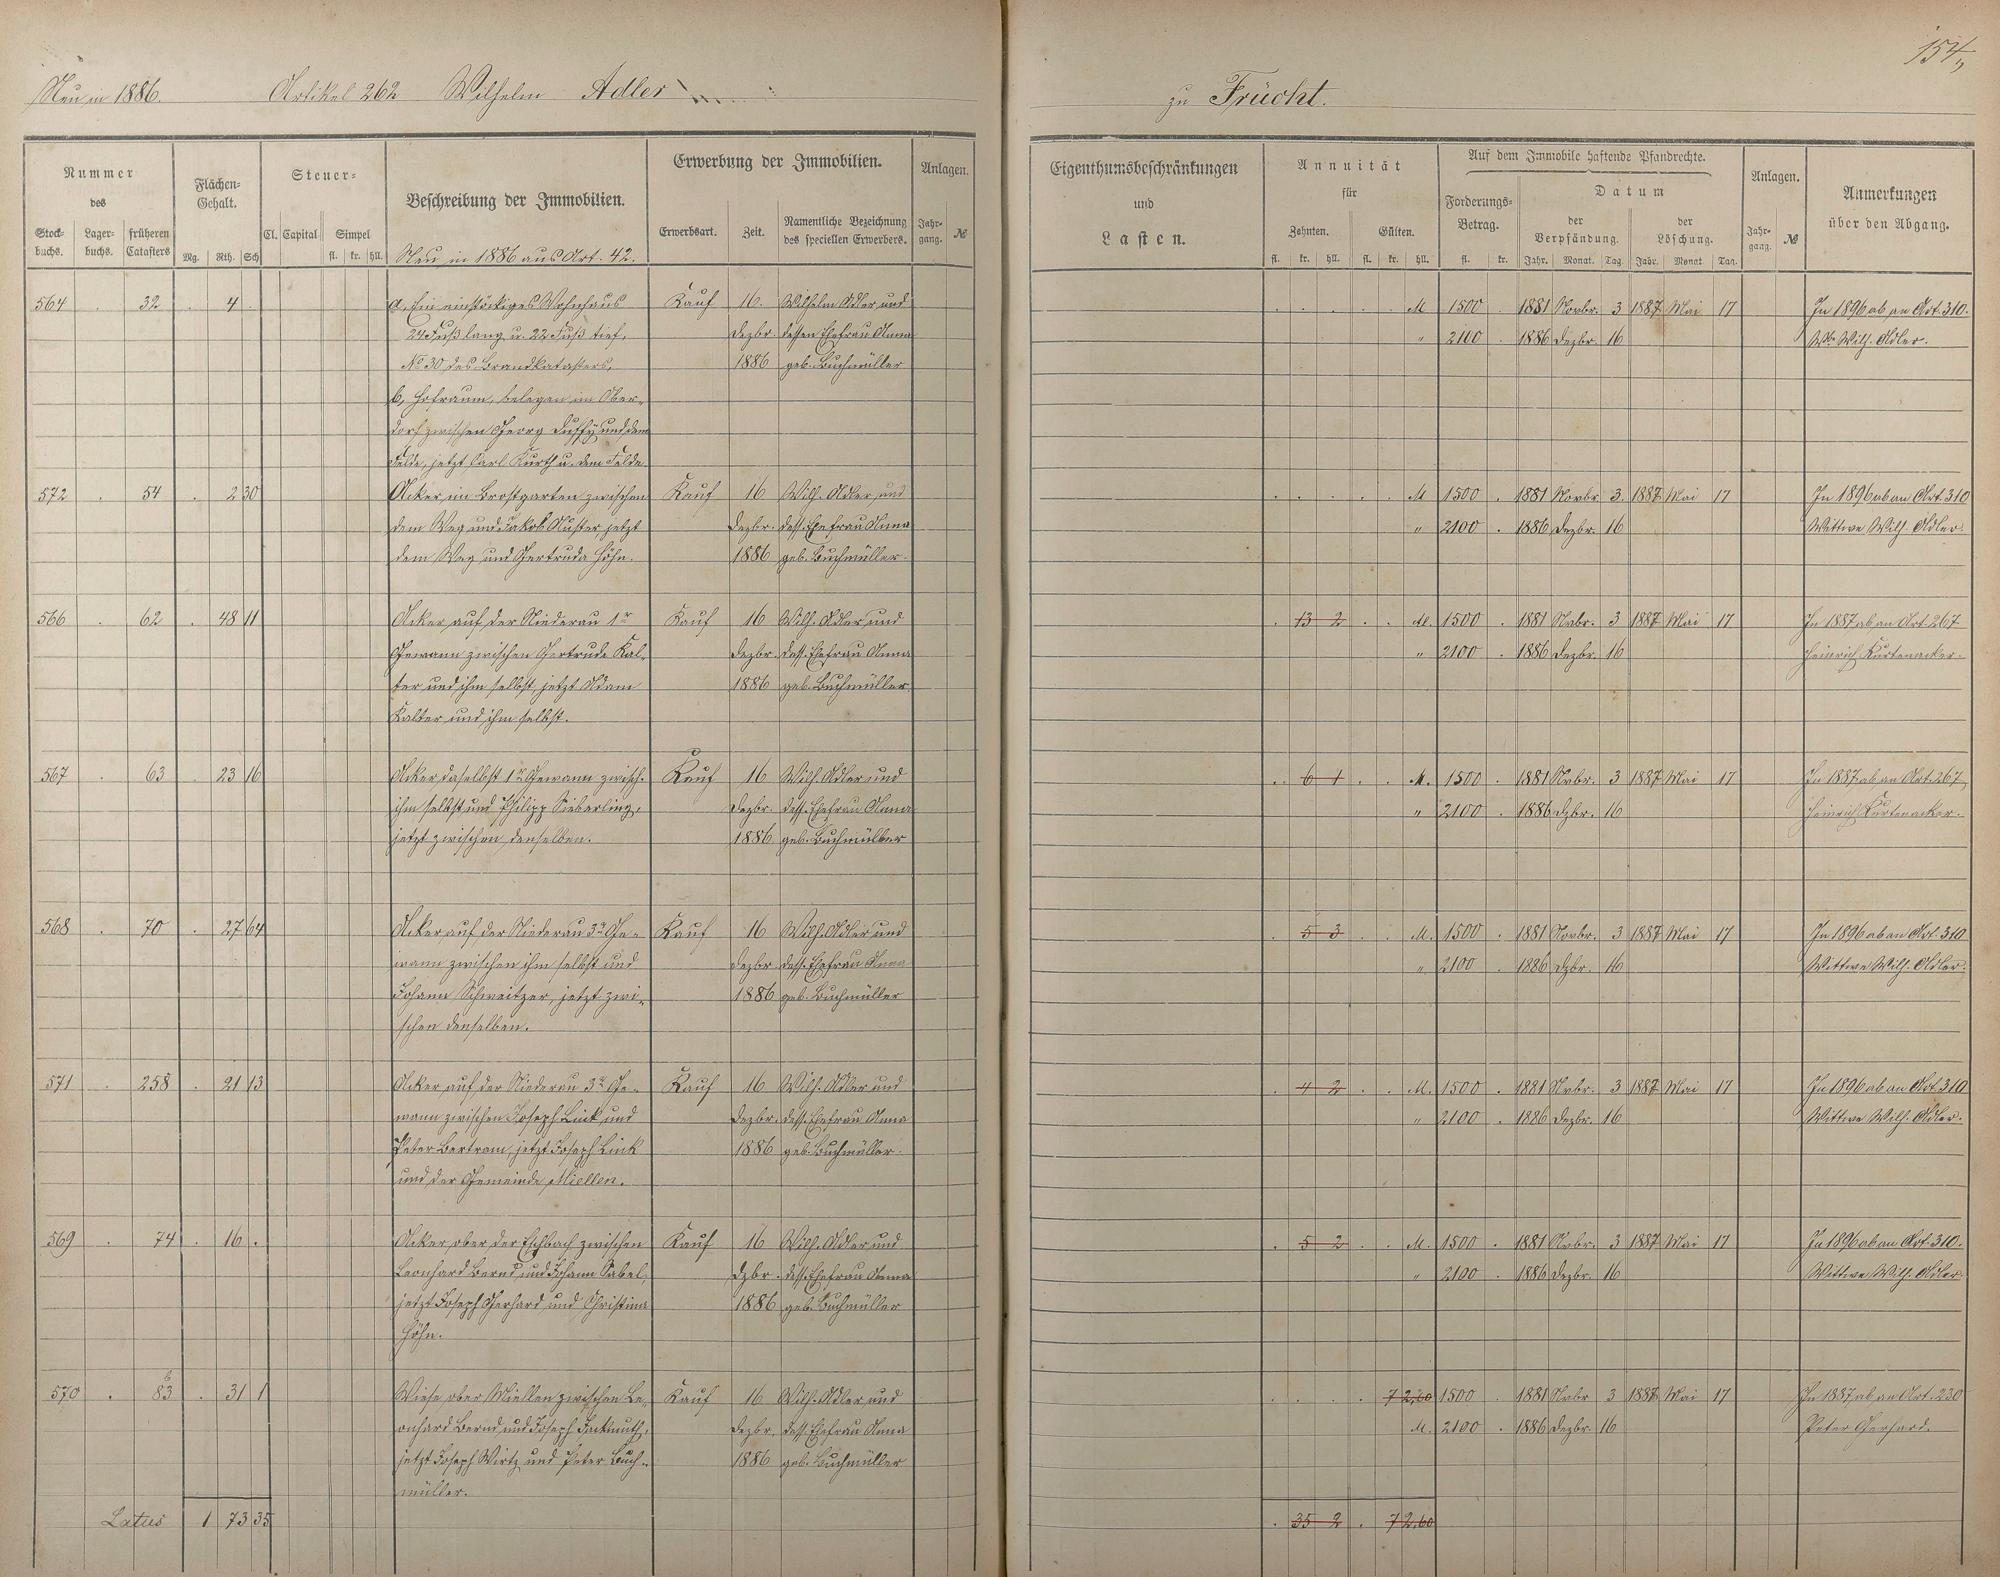 154
Neu in 1886. Artikel 262 Wilhelm Adler zu Frücht.
Nummer des
Stockbuchs. Lagerbuchs. früheren Catasters
Flächen-Gehalt.
Mg. Rth. Sch
Steuer-
Cl. Capital Simpel
fl. kr. hll.
Beschreibung der Immobilien.
Neu in 1886 aus Art. 42.
Erwerbung der Immobilien.
Erwerbsart. Zeit. Namentliche Bezeichnung des speciellen Erwerbers.
Anlagen.
Jahrgang. №
Eigenthumsbeschränkungen
und
Lasten.
Annuität
für
Zehnten. Gülten.
fl. kr. hll. fl. kr. hll.
Auf dem Immobile haftende Pfandrechte.
Forderungs-Betrag.
fl. kr.
Datum
der Verpfändung. der Löschung.
Jahr. Monat. Tag. Jahr. Monat. Tag.
Anlagen.
Jahrgang. №
Anmerkungen
über den Abgang.
564 . 32 . 4 . a, Ein einstöckiges Wohnhaus Kauf 16. Wilhelm Adler und M 1500 . 1881 Novbr. 3 1887 Mai 17 In 1896 ab an Art. 310.
24 Fuß lang u. 22 Fuß tief, Dezbr dessen Ehefrau Anna " 2100 . 1886 Dezbr. 16 Wb. Wilh. Adler.
No 30 des Brandkatasters, 1886 geb. Buchmüller
b, Hofraum, belegen im Ober-
dorf zwischen Georg Duffy und dem
Felde, jetzt Carl Kurth u. dem Felde.
572 . 54 . 2 30 Acker im Brostgarten zwischen Kauf 16 Wilh. Adler und M 1500 . 1881 Novbr. 3. 1887 Mai 17 In 1896 ab an Art. 310
dem Weg und Jakob Auster, jetzt Dezbr. dess. Ehefrau Anna " 2100 . 1886 Dezbr. 16 Wittwe Wilh. Adler.
dem Weg und Gertruda Höhn. 1886 geb. Buchmüller.
566 . 62 . 48 11 Acker auf der Niederau 1r Kauf 16 Wilh. Adler und . 13 2 . . M. 1500 . 1881 Nvbr. 3 1887 Mai 17 In 1887 ab an Art. 267
Gewann zwischen Gertrude Kal- Dezbr. dess. Ehefrau Anna " 2100 . 1886 Dezbr. 16 Heinrich Kurtenacker.
ter und ihm selbst, jetzt Adam 1886 geb. Buchmüller
Kalter und ihm selbst.
567 . 63 . 23 16 Acker daselbst 1r Gewann zwisch. Kauf 16 Wilh. Adler und . 6 1 . . M. 1500 . 1881 Nvbr. 3 1887 Mai 17 In 1887 ab an Art. 267
ihm selbst und Philipp Sieberling, Dezbr. dess. Ehefrau Anna " 2100 . 1886 Dzbr. 16 Heinrich Kurtenacker.
jetzt zwischen denselben. 1886 geb. Buchmüller
568 . 70 . 27 64 Acker auf der Niederau 3r Ge- Kauf 16 Wilh. Adler und . 5 3 . . M. 1500 . 1881 Novbr. 3 1887 Mai 17 In 1896 ab an Art. 310
wann zwischen ihm selbst und Dezbr dess. Ehefrau Anna " 2100 . 1886 Dzbr. 16 Wittwe Wilh. Adler.
Johann Schweitzer, jetzt zwi- 1886 geb. Buchmüller
schen denselben.
571 . 258 . 21 13 Acker auf der Niederau 3r Ge- Kauf 16 Wilh. Adler und . 4 2 . . M. 1500 . 1881 Nvbr. 3 1887 Mai 17 In 1896 ab an Art. 310
wann zwischen Joseph Linck und Dezbr. dess. Ehefrau Anna " 2100 . 1886 Dezbr. 16 Wittwe Wilh. Adler.
Peter Bertram, jetzt Joseph Linck 1886 geb. Buchmüller.
und der Gemeinde Miellen.
569 . 74 . 16 . Acker, ober der Eschbach zwischen Kauf 16 Wilh. Adler und . 5 2 . . M. 1500 . 1881 Nvbr. 3 1887 Mai 17 In 1896 ab an Art. 310.
Leonhard Bernd und Johann Sabel, Dzbr. dess. Ehefrau Anna " 2100 . 1886 Dezbr. 16 Wittwe Wilh. Adler.
jetzt Joseph Gerhard und Christina 1886 geb. Buchmüller
Höhn.
570 . 83 b . 31 1 Wiese ober Miellen zwischen Le- Kauf 16 Wilh. Adler und . . . . 7 2,60 1500 . 1881 Nvbr 3 1887 Mai 17 In 1887 ab an Art. 230
onhard Bernd und Joseph Dezbr. dess. Ehefrau Anna M. 2100 . 1886 Dezbr. 16 Peter Gerhard.
jetzt Joseph Wirtz und Peter Buch- 1886 geb. Buchmüller
müller.
Latus 1 73 35 . 35 2 . 7 2,60